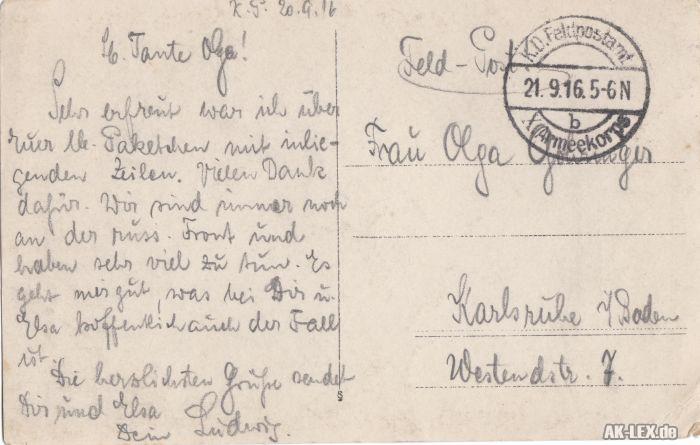 K. P. 20.9.16
Lb. Tante Olga!
Sehr erfreut war ich über
euer lb. Paketchen mit inlie-
genden Zeilen. Vielen Dank
dafür. Wir sind immer noch
an der russ. Front und
haben sehr viel zu tun. Es
geht mir gut, was bei Dir u.
Elsa hoffentlich auch der Fall
ist.
Die herzlichsten Grüße sendet
Dir und Elsa
Dein Ludwig.
Feld-Post
K.D. Feldpostamt
21.9.16. 5-6 N
b
Armeekorps
Frau Olga
Karlsruhe i/Baden
Westendstr. 7.
S
AK-LEX.de